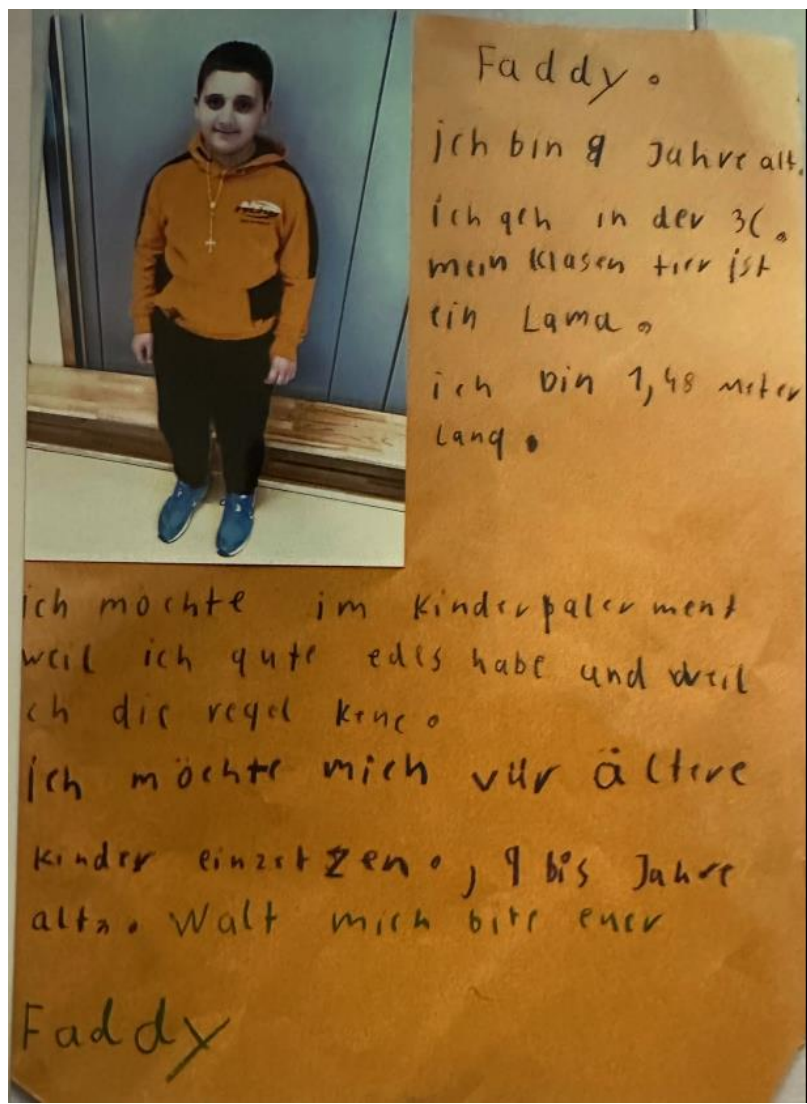 Faddy.
ich bin 9 Jahre alt.
ich geh in der 3C.
mein klasen tier ist
ein Lama.
ich bin 1,48 meter
lang.
ich mochte im kinderpalerment
weil ich gute edes habe und weil
ich die regel kene.
ich möchte mich vür ältere
kinder einzetzen., 9 bis Jahre
alta. Walt mich bite euer
Faddy